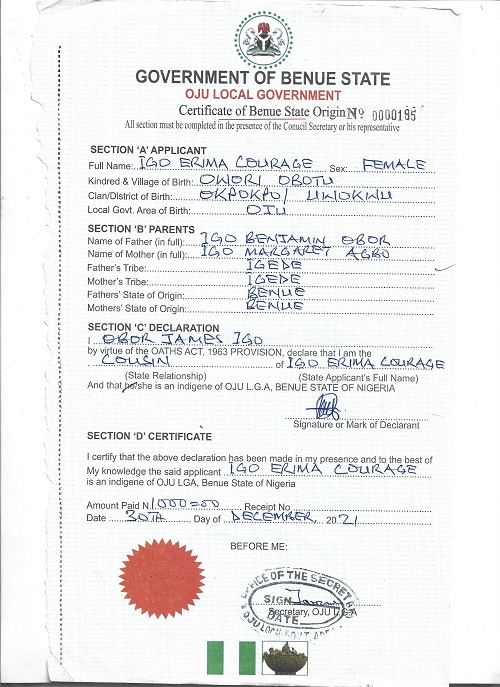 GOVERNMENT OF BENUE STATE
OJU LOCAL GOVERNMENT
Certificate of Benue State Origin Nº 0000195
All section must be completed in the presence of the Conucil Secretary or his representative
SECTION 'A' APPLICANT
Full Name: IGO ERIMA COURAGE Sex: FEMALE
Kindred & Village of Birth: OWORI OBOTU
Clan/District of Birth: OKPOKPO/ UWOKWU
Local Govt. Area of Birth: OJU
SECTION 'B' PARENTS
Name of Father (in full): IGO BENJAMIN OBOR
Name of Mother (in full): IGO MARGARET AGBO
Father's Tribe: IGEDE
Mother's Tribe: IGEDE
Fathers' State of Origin: BENUE
Mothers' State of Origin: BENUE
SECTION 'C' DECLARATION
I OBOR JAMES IGO
by virtue of the OATHS ACT, 1963 PROVISION, declare that I am the
COUSIN of IGO ERIMA COURAGE
(State Relationship) (State Applicant's Full Name)
And that he/she is an indigene of OJU L.G.A, BENUE STATE OF NIGERIA
Signature or Mark of Declarant
SECTION 'D' CERTIFICATE
I certify that the above declaration has been made in my presence and to the best of
My knowledge the said applicant IGO ERIMA COURAGE
is an indigene of OJU LGA, Benue State of Nigeria
Amount Paid N1000=00 Receipt No
Date 30TH Day of DECEMBER, 2021
BEFORE ME:
OFFICE OF THE SECRETARY
SIGN
DATE
Secretary, OJU LGA
OJU LOCAL GOVT.